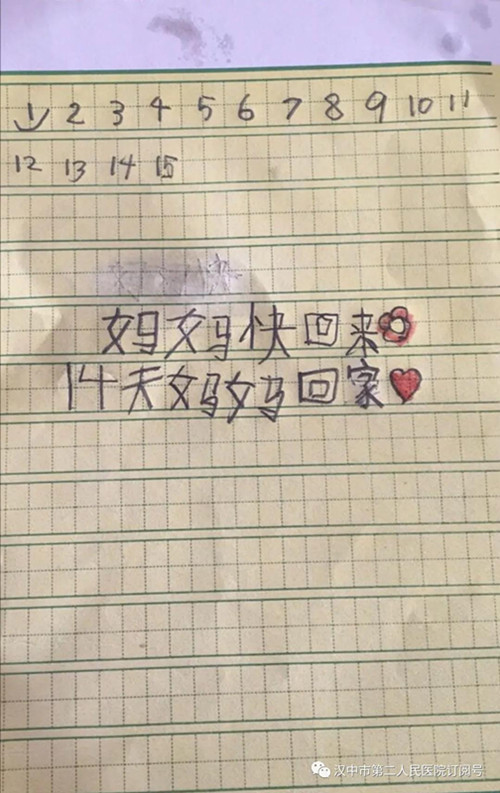 1 2 3 4 5 6 7 8 9 10 11
12 13 14 15
妈妈快回来
14天妈妈回家
汉中市第二人民医院订阅号